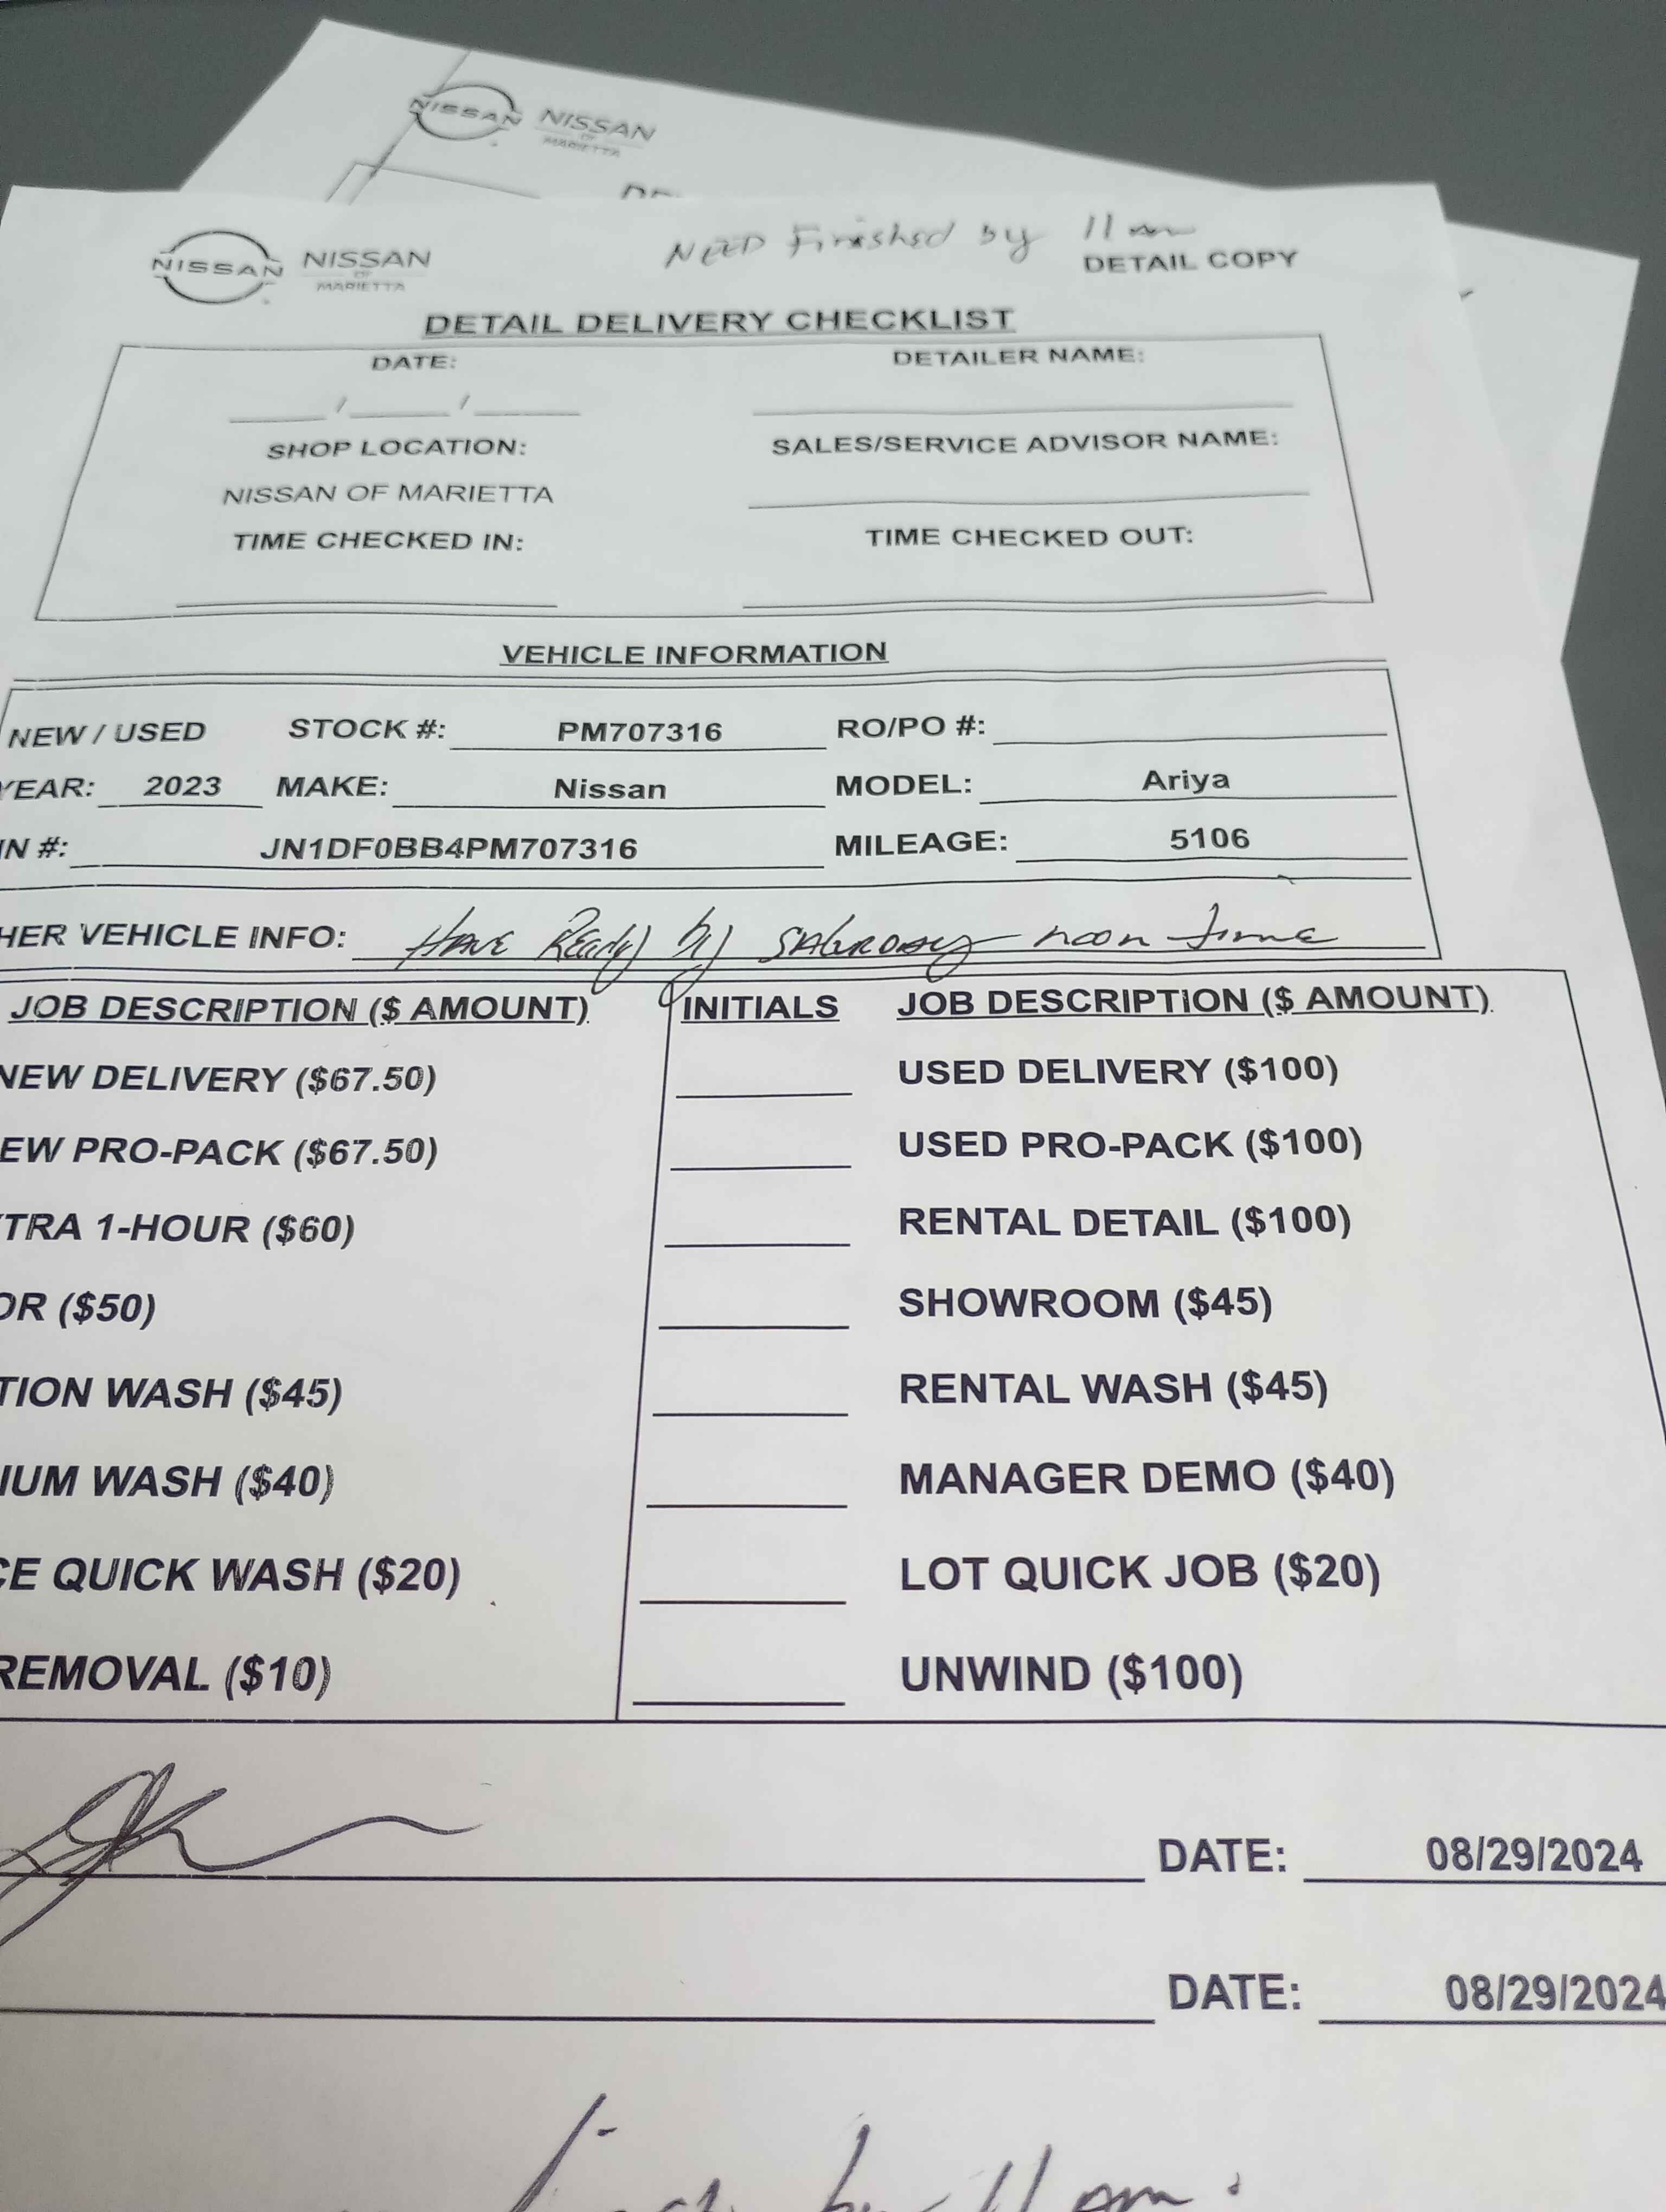 NISSAN NISSAN
OF
MARIETTA
NEED Finished by 11 am
NISSAN NISSAN
OF
MARIETTA
DETAIL COPY
DETAIL DELIVERY CHECKLIST
DATE: DETAILER NAME:
____/____/____
SHOP LOCATION: SALES/SERVICE ADVISOR NAME:
NISSAN OF MARIETTA
TIME CHECKED IN: TIME CHECKED OUT:
VEHICLE INFORMATION
NEW / USED STOCK #: PM707316 RO/PO #:
YEAR: 2023 MAKE: Nissan MODEL: Ariya
IN #: JN1DF0BB4PM707316 MILEAGE: 5106
HER VEHICLE INFO: Have Ready by Saturday noon time
JOB DESCRIPTION ($ AMOUNT) INITIALS JOB DESCRIPTION ($ AMOUNT)
NEW DELIVERY ($67.50) USED DELIVERY ($100)
EW PRO-PACK ($67.50) USED PRO-PACK ($100)
TRA 1-HOUR ($60) RENTAL DETAIL ($100)
OR ($50) SHOWROOM ($45)
TION WASH ($45) RENTAL WASH ($45)
IUM WASH ($40) MANAGER DEMO ($40)
CE QUICK WASH ($20) LOT QUICK JOB ($20)
REMOVAL ($10) UNWIND ($100)
DATE: 08/29/2024
DATE: 08/29/2024
by 11 am